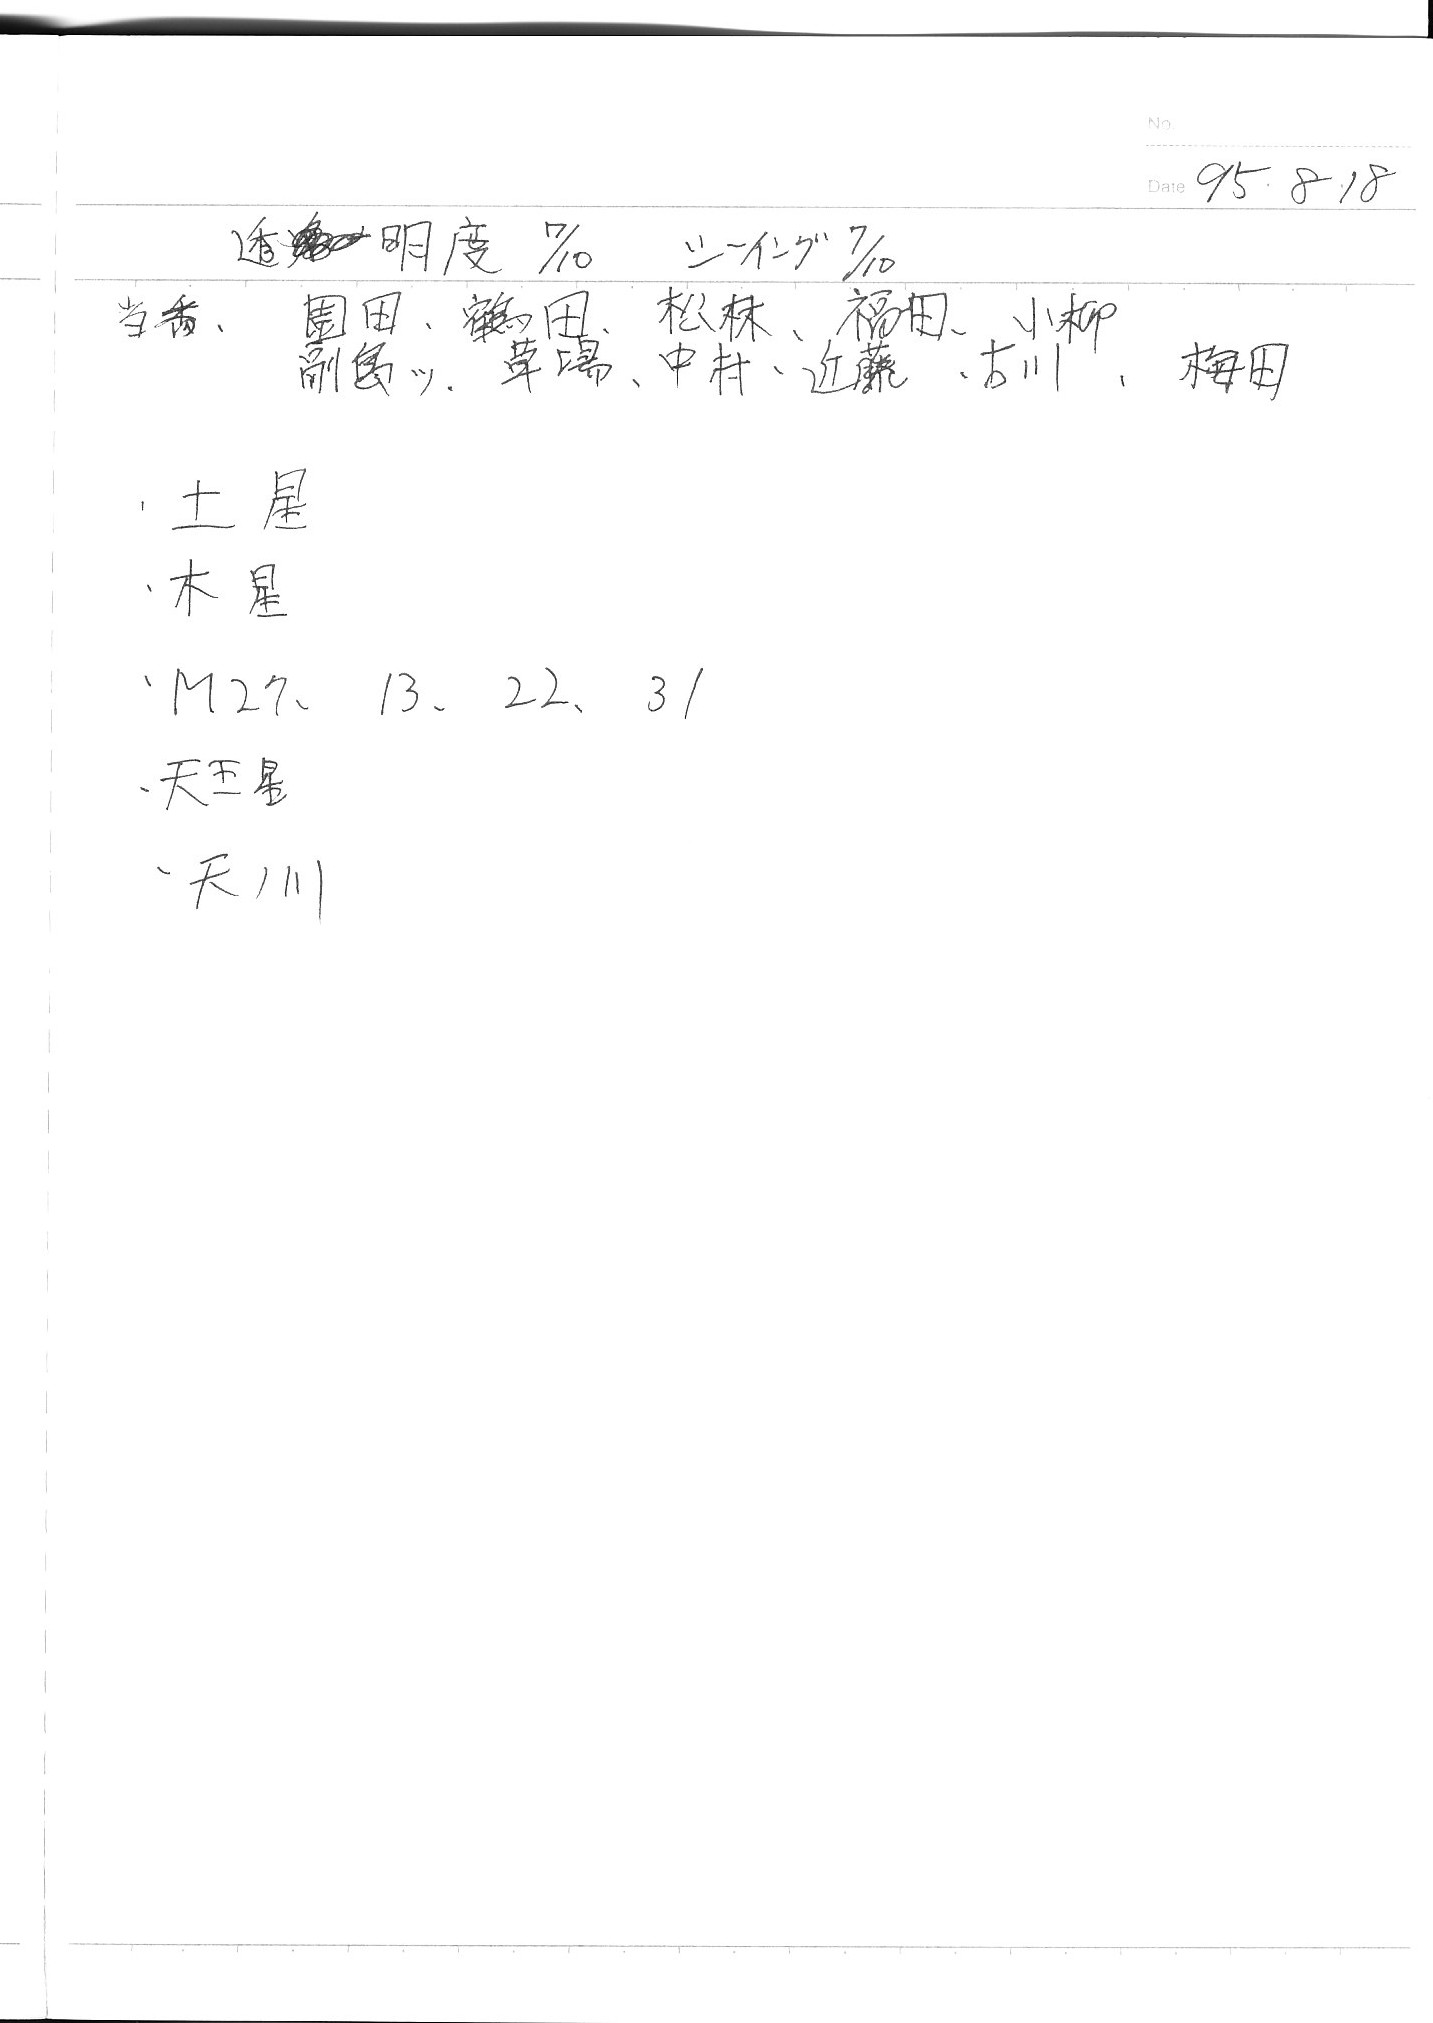 No.
Date 95.8.18
透明度 7/10 シーイング 7/10
当番、 園田、鶴田、松林、福田、小柳
副島ッ、草場、中村、近藤、古川、梅田
・土星
・木星
・M27、 13、 22、 31
・天王星
・天ノ川